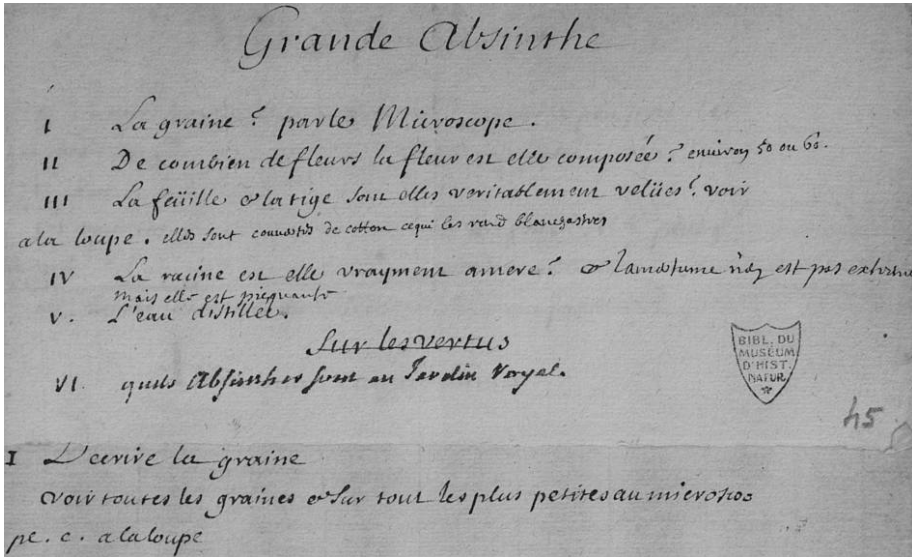 Grande Absinthe
I La graine? par le Microscope.
II De combien de fleurs la fleur est elle composée? environ 50 ou 60.
III La feüille & la tige sont elles veritablement velües? voir
a la loupe. elles sont couvertes de cotton ce qui les rend blancheastres
IV La racine est elle vrayment amere? & l'amertume n'en est pas extreme
mais elle est picquante
V. L'eau distillée.
Sur les vertus
VI. quels Absinthes sont au Jardin Royal.
BIBL. DU
MUSÉUM
D'HIST.
NATUR.
45
I Decrire la graine
voir toutes les graines & sur tout les plus petites au microsco
pe. c. a la loupe